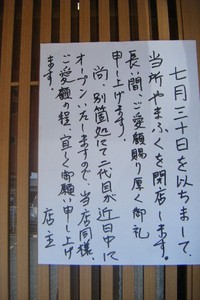 七月三十日を以ちまして、
当所やまふくを閉店します。
長い間ご愛顧賜り厚く御礼
申し上げます。
尚、別箇処にて二代目が近日中に
オープンいたしますので、当店同様、
ご愛顧の程、宜しく御願い申し上げ
ます。
店主